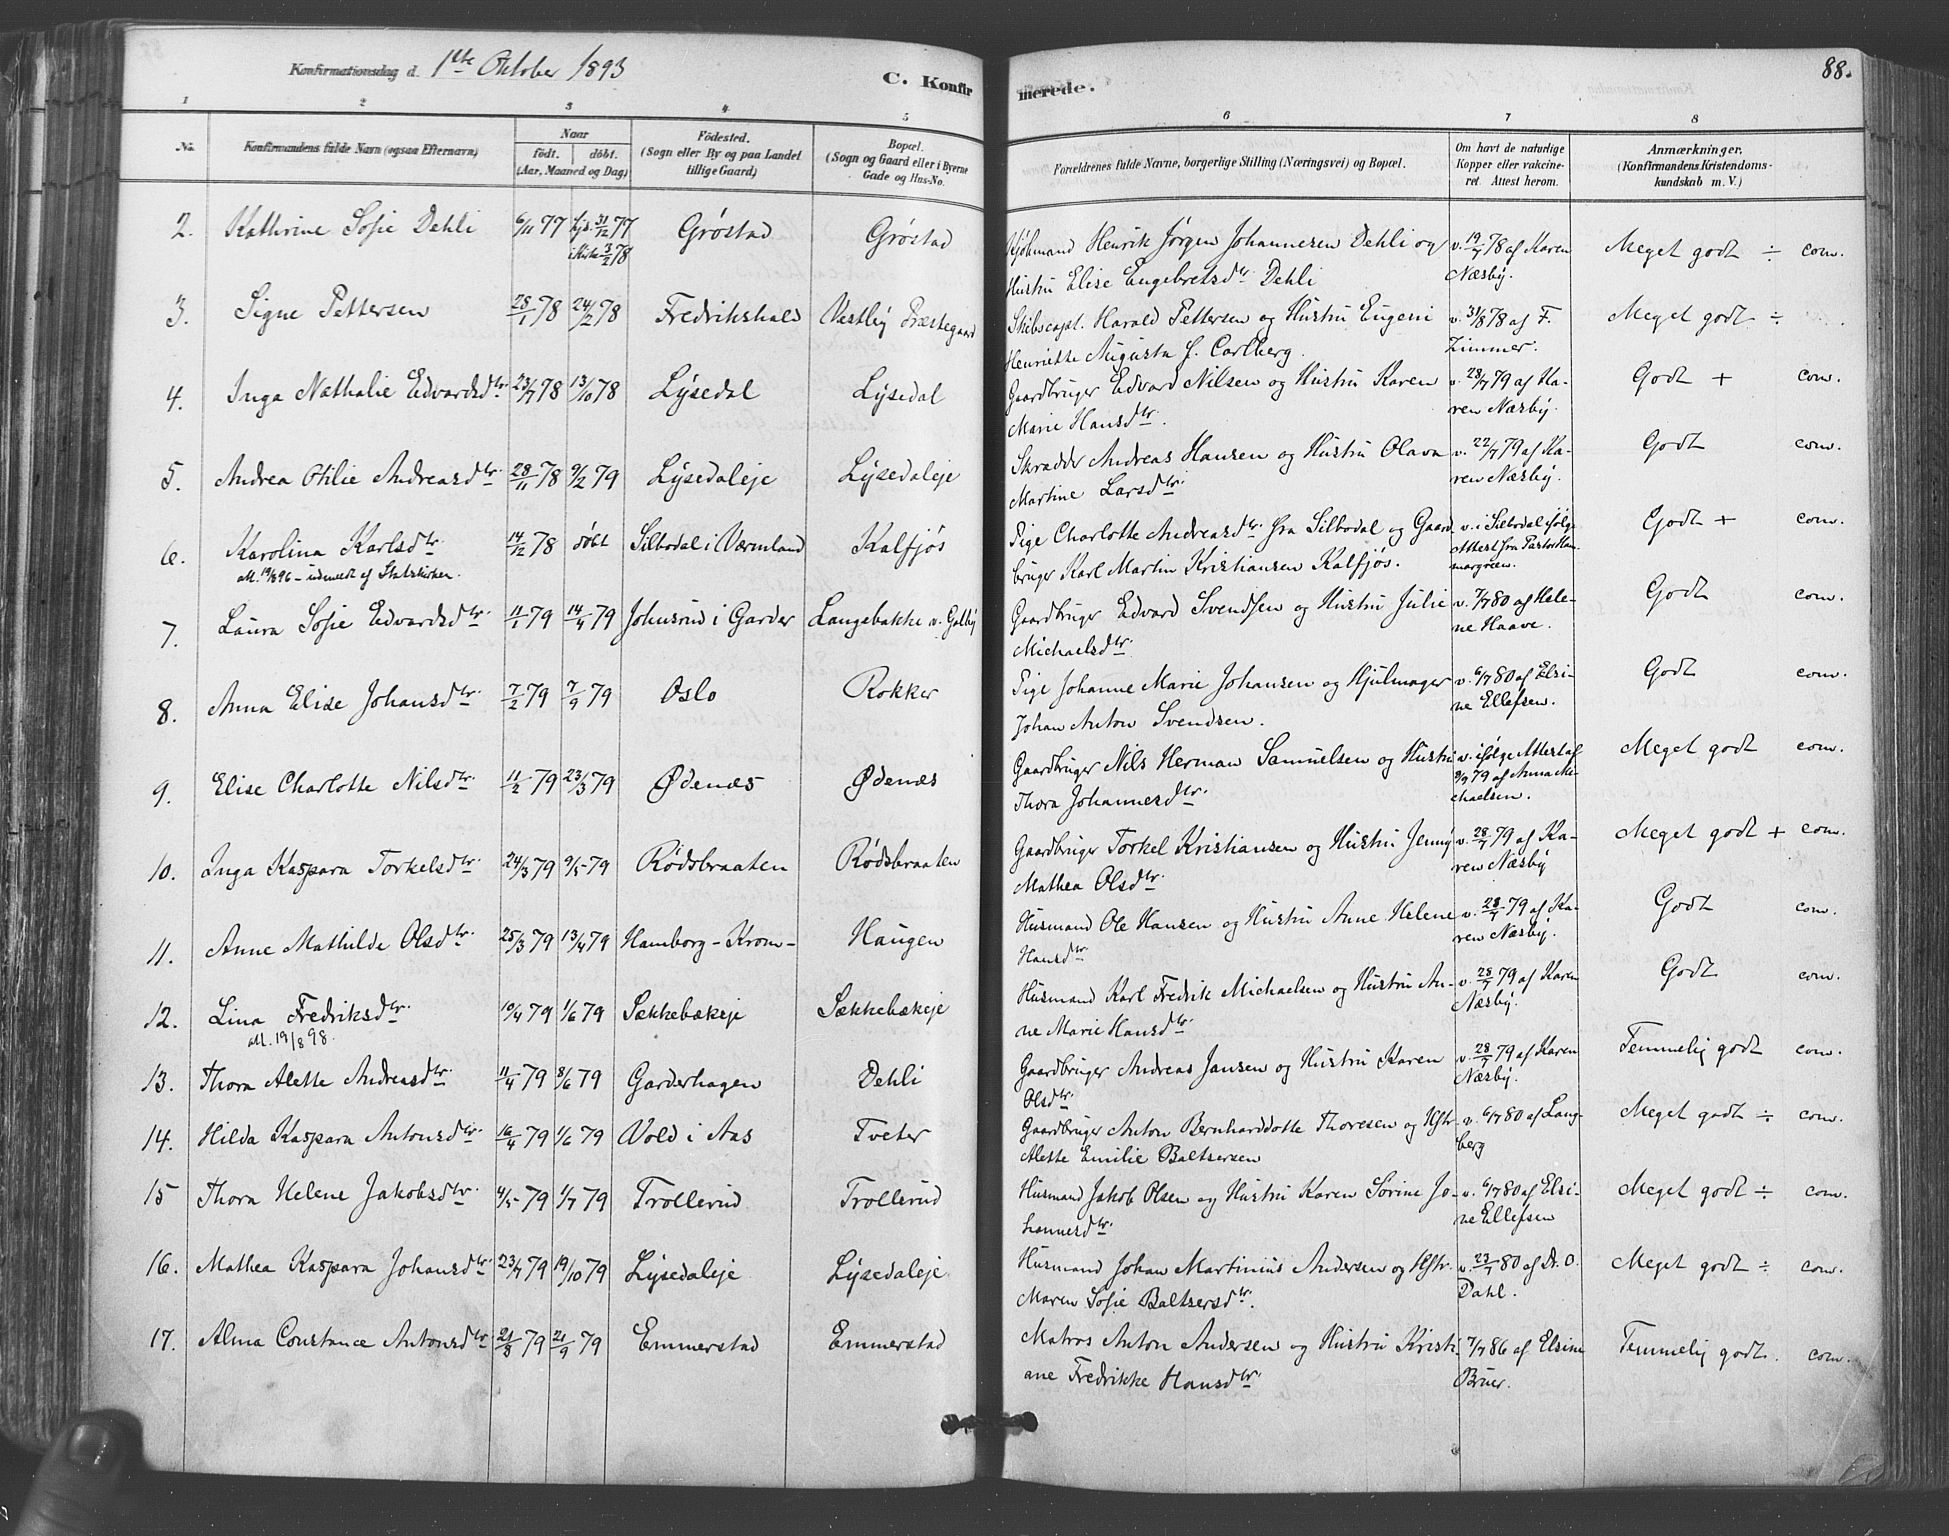 Konfirmationsdag d. 1ste Oktober 1893
C. Konfirmerede.
88.
1 2 3 4 5 6 7 8
No. Konfirmandens fulde Navn (ogsaa Efternavn)
Naar födt. döbt. (Aar, Maaned og Dag)
Födested. (Sogn eller By og paa Landet tillige Gaard)
Bopæl. (Sogn og Gaard eller i Byerne Gade og Hus-No.
Forældrenes fulde Navne, borgerlige Stilling (Næringsvei) og Bopæl.
Om havt de naturlige Kopper eller vakcineret. Attest herom.
Anmærkninger. (Konfirmandens Kristendomskundskab m. V.)
2. Kathrine Sofie Dehli 6/11 77 hjd. 31/12 77 Grøstad Grøstad Kjøbmand Henrik Jørgen Johannesen Dehli og v. 19/7 78 af Karen Meget godt ÷ com.
i Kirke 3/2 78 Hustru Elise Engebretsdtr. Dehli Næsby.
3. Signe Pettersen 28/1 78 24/2 78 Fredrikshald Vestby Præstegaard Skibscapt. Harald Pettersen og Hustru Eugeni v. 31/8 78 af F. Meget godt ÷
Henriette Augusta f. Carlberg. Zimmer.
4. Inga Nathalie Edvardsdtr. 23/7 78 13/10 78 Lysedal Lysedal Gaardbruger Edvard Nilsen og Hustru Karen v. 28/7 79 af Ka- Godt + com.
Marie Hansdtr. ren Næsby.
5. Andrea Otilie Andreasdtr. 28/11 78 9/2 79 Lysedaleje Lysedaleje Skrædder Andreas Hansen og Hustru Olava v. 22/7 79 af Ka- Godt com.
Martine Larsdtr. ren Næsby.
6. Karolina Karlsdtr. 14/12 78 døbt Silbodal i Værmland Kalfjøs Pige Charlotte Andreasdtr. fra Silbodal og Gaard v. i Silbodal ifølge Godt + com.
att. 19/8 96 – udmeldt af Statskirken. bruger Karl Martin Kristiansen Kalfjøs. Attest fra Pastor
7. Laura Sofie Edvardsdtr. 11/1 79 14/4 79 Johnsrud i Garder Langebakke v. Galby Gaardbruger Edvard Svendsen og Hustru Julie v. 7/7 80 af Hele- Godt com.
Michaelsdtr. ne Haave.
8. Anna Elise Johansdtr. 7/2 79 7/9 79 Oslo Rokker Pige Johanne Marie Johansen og Hjulmager v. 6/7 80 af Elsi- Godt com.
Johan Anton Svendsen. ne Ellefsen.
9. Elise Charlotte Nilsdtr. 11/2 79 23/3 79 Ødenæs Ødenæs Gaardbruger Nils Herman Samuelsen og Hustru v. ifølge Attest af Meget godt com.
Thora Johannesdtr. 9/9 79 af Anna Mi-
chaelsen.
10. Inga Kaspara Torkelsdtr. 24/3 79 9/5 79 Rødsbraaten Rødsbraaten Gaardbruger Torkel Kristiansen og Hustru Jenny v. 28/7 79 af Ka- Meget godt + com.
Mathea Olsdtr. ren Næsby
11. Anne Mathilde Olsdtr. 25/3 79 13/4 79 Hamborg-Krom- Haugen Husmand Ole Hansen og Hustru Anne Helene v. 28/7 79 af Ka- Godt com.
Hansdtr. ren Næsby.
12. Lina Fredriksdtr. 10/4 79 1/6 79 Sækkebækeje Sækkebækeje Husmand Karl Fredrik Michaelsen og Hustru An- v. 28/7 79 af Karen Godt com.
att. 19/8 98. ne Marie Hansdtr. Næsby.
13. Thora Alette Andreasdtr. 11/4 79 8/6 79 Garderhagen Dehli Gaardbruger Andreas Jansen og Hustru Karen v. 28/7 79 af Karen Temmelig godt com.
Olsdtr. Næsby.
14. Hilda Kaspara Antonsdtr. 16/4 79 1/6 79 Vold i Aas Tveter Gaardbruger Anton Bernharddotte Thoresen og Hstr. v. 6/7 80 af Lang- Meget godt ÷ com.
Alette Emilie Baltsersen berg
15 Thora Helene Jakobsdtr. 4/5 79 1/7 79 Trollerud Trollerud Husmand Jakob Olsen og Hustru Karen Sørine Jo- v. 6/7 80 af Elsi- Meget godt ÷ com.
hannesdtr. ne Ellefsen
16. Mathea Kaspara Johansdtr. 23/7 79 19/10 79 Lysedaleje Lysedaleje Husmand Johan Martinius Andersen og Hstr. v. 23/7 80 af Dr. O. Meget godt ÷ com.
Maren Sofie Baltsersdtr. Dahl.
17. Alma Constance Antonsdtr 21/8 79 21/9 79 Emmerstad Emmerstad Matros Anton Andersen og Hustru Kristi- 7/7 86 af Elsine Temmelig godt. com.
ane Fredrikke Hansdtr. Bruer.